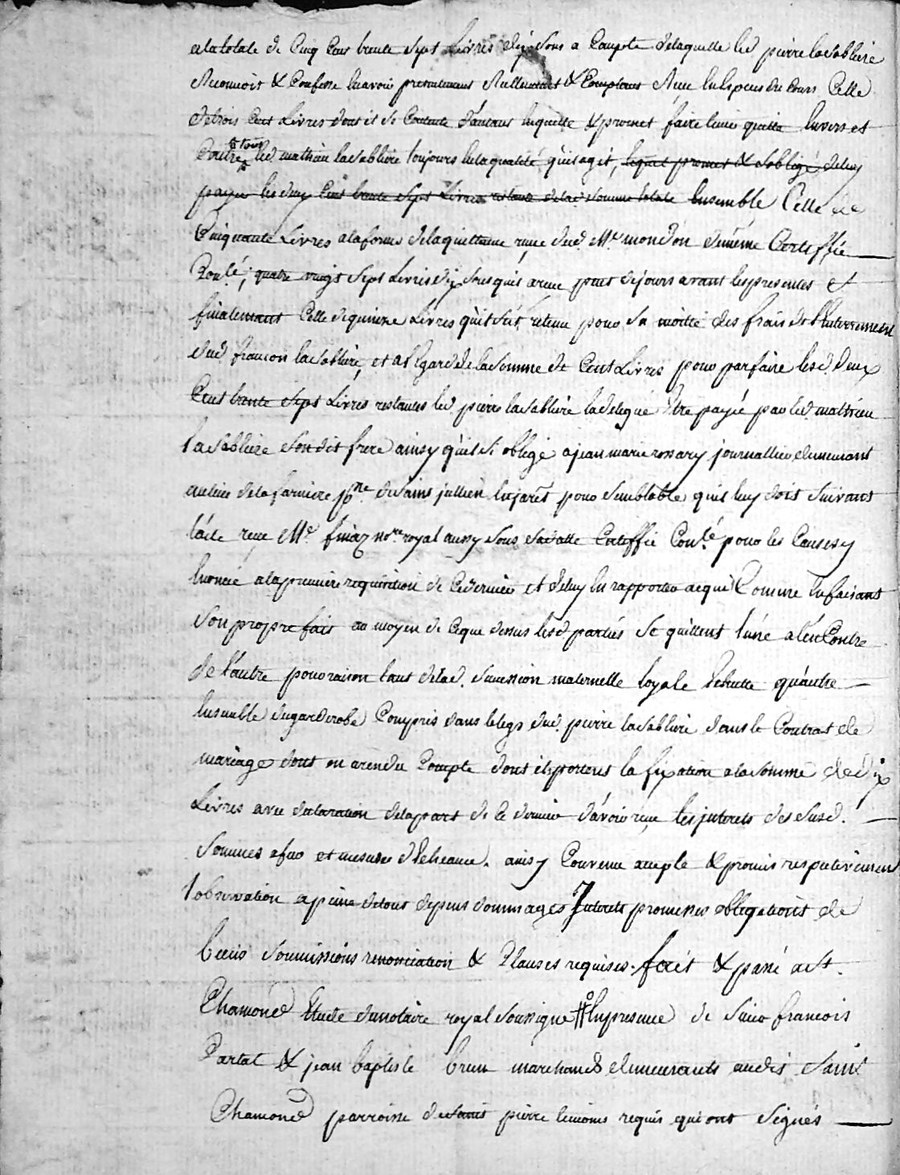 a la totale de Cinq Cent trente Sept Livres dix Sous a Compte de laquelle led pierre lasabliere
Reconnoit & Confesse en avoir presentement Reellement & Comptant Reçu en especes du Cours Celle
de trois Cent Livres dont il Se Contente d'autant en quitte & promet faire tenir quitte Envers et
Contre tous led mathieu lasabliere toujours en la qualité qu'il agit, lequel promet & Soblige de luy
payer les deux Cent trente Sept Livres restante de lad Somme totale Ensemble Celle de
Cinquante Livres a la forme de la quittance reçue dud. Me. mondon dument Certiffié
Conlé, quatre vingt Sept Livres dix Sous qu'il a reçue par et dejours avant les presentes et
finalement Celle de quinze Livres qu'il S'est retenu pour Sa moitié des frais de l'Enterrement
dud francon lasabliere, et a l'Egard de la Somme de Cent Livres pour parfaire lesd deux
Cent trente Sept Livres restantes led. pierre lasabliere la delegue Etre payée par led mathieu
lasabliere Son dit frere ainsy qu'il S'i oblige a jean marie rossary journallier demeurant
au lieu de la farniere psse. de Saint jullien en jarêts pour Semblable qu'il luy doit Suivant
l'acte reçu Me. finaz nore. royal aussy Sous Sa datte Certiffié Conlé. pour les Causes y
Enoncé a la premiere requisition de Ce dernier et de luy en rapporter acquit Comme En faisant
Son propre fait au moyen de Ce que dessus lesd parties Se quittent l'une a l'enContre
de l'autre pour raison tant de lad. Succession maternelle loyale Echutte qu'autre
Ensemble du garderobe Compris dans le legs dud. pierre lasabliere dans le Contrat de
mariage dont on a rendu Compte dont ils portent la fixation a la Somme de dix
Livres avec declaration de la part de Ce dernier d'avoir reçu les jnterets des Susd.
Sommes a fur et mesure d'Echeance. ainsy Convenu accepté & promis respectivement
l'observation a peine de tous depens dommages Jnterets promesses obligations de
biens Soumissions renonciation & Clauses requises. fait & passé a St.
Chamond Etude du notaire royal Soussigné # En presence de Sieur francois
Partal & jean baptiste brun marchands demeurants audit Saint
Chamond parroisse de Saint pierre temoins requis qui ont Signés